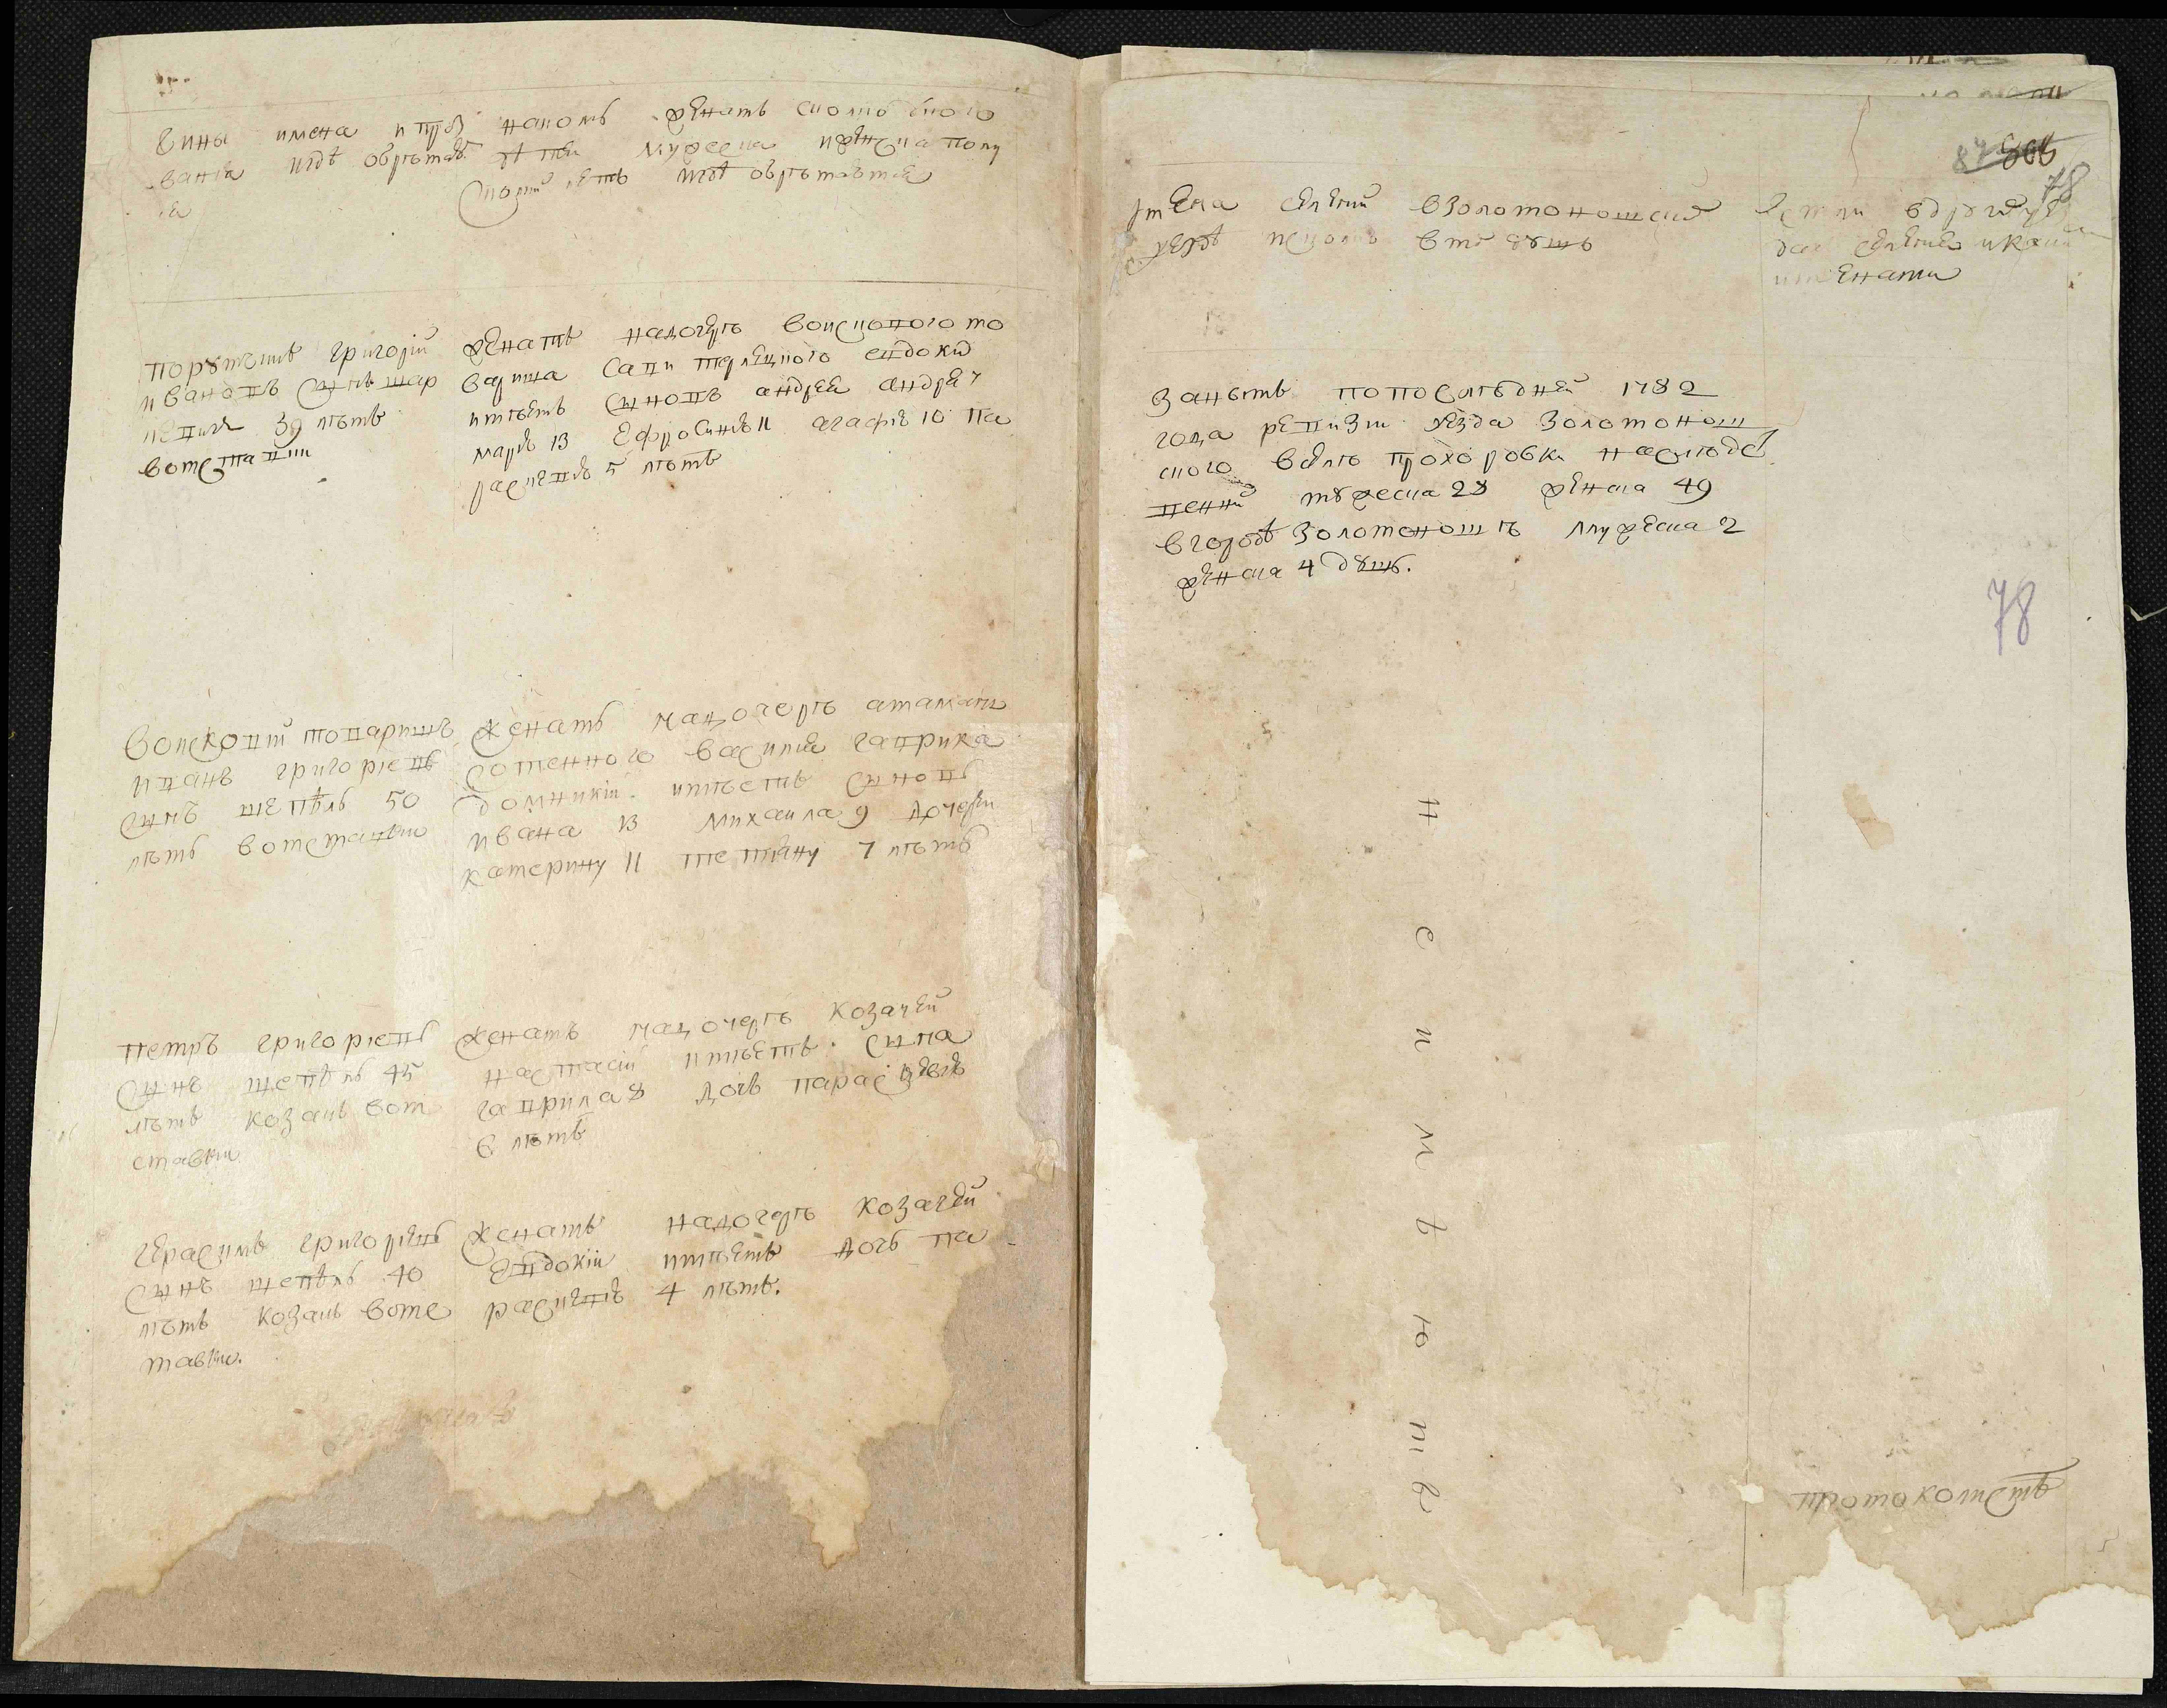 чины имена и проз
вания игдѣ обрѣтает
ся
на комъ женатъ сколко оного
дѣтей мужеска и женска полу
сколки лѣтъ игдѣ обрѣтаются
порутчикъ григорій
ивановъ сынъ
39 лѣтъ
вотставки
женатъ надочерѣ войскового то
варища савы терлецкого евдокии
имѣетъ сыновъ андрея андрея
марію 13 ефросинію 11 агафію 10 па
раскевію 5 лѣтъ
войсковій товаришъ
иванъ григориевъ
сынъ шепѣль 50
лѣтъ вотставки
женатъ надочерѣ атамана
сотенного василия гаврика
домникіи имѣетъ сыновъ
ивана 13 михаила 9 дочери
катерину 11 тетяну 7 лѣтъ
петръ григориевъ
сынъ шепѣль 45
лѣтъ козакъ вот
ставки
женатъ надочерѣ козачей
настасіи имѣетъ сына
гаврила 8 дочь параскевію
6 лѣтъ
герасимъ григориевъ
сынъ шепѣль 40
лѣтъ козакъ вотс
тавки.
женатъ надочерѣ козачей
евдокіи имѣетъ дочь па
раскевію 4 лѣтъ.
87
78
имена селеній взолотоношскомъ
уездѣ исколко втѣх душъ
естли вдругомъ уез
де селение икакие
имянами
занымъ попослѣдней 1782
года ревизии уезда золотонош
ского вселѣ прохоровки наслѣдс
венни мужеска 28 женска 49
вгородѣ золотоношѣ мужеска 2
женска 4 душъ.
78
н е и м ѣ ю т ъ
протоколистъ